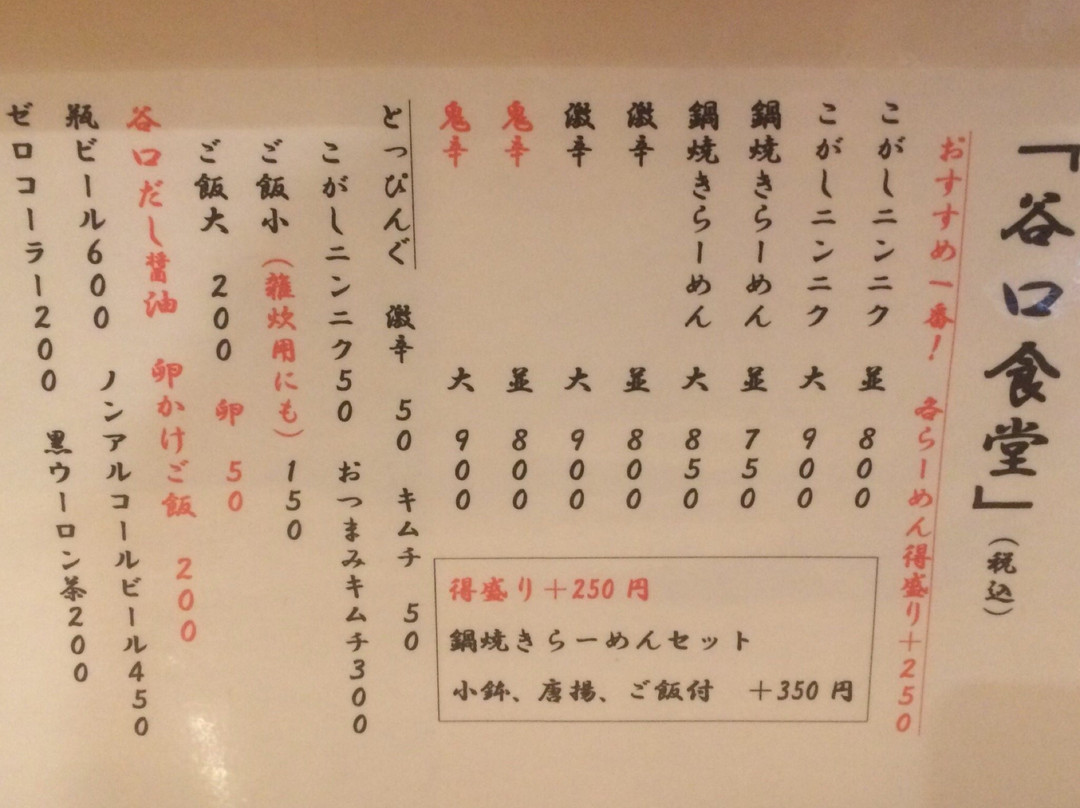 「谷口食堂」（税込）
おすすめ一番！ 各らーめん得盛り＋250
こがしニンニク 並 800
こがしニンニク 大 900
鍋焼きらーめん 並 750
鍋焼きらーめん 大 850
激辛 並 800
激辛 大 900
鬼辛 並 800
鬼辛 大 900
得盛り＋250 円
鍋焼きらーめんセット
小鉢、唐揚、ご飯付 ＋350 円
とっぴんぐ 激辛 50 キムチ 50
こがしニンニク50 おつまみキムチ300
ご飯小（雑炊用にも）150
ご飯大 200 卵 50
谷口だし醤油 卵かけご飯 200
瓶ビール600 ノンアルコールビール450
ゼロコーラー200 黒ウーロン茶200